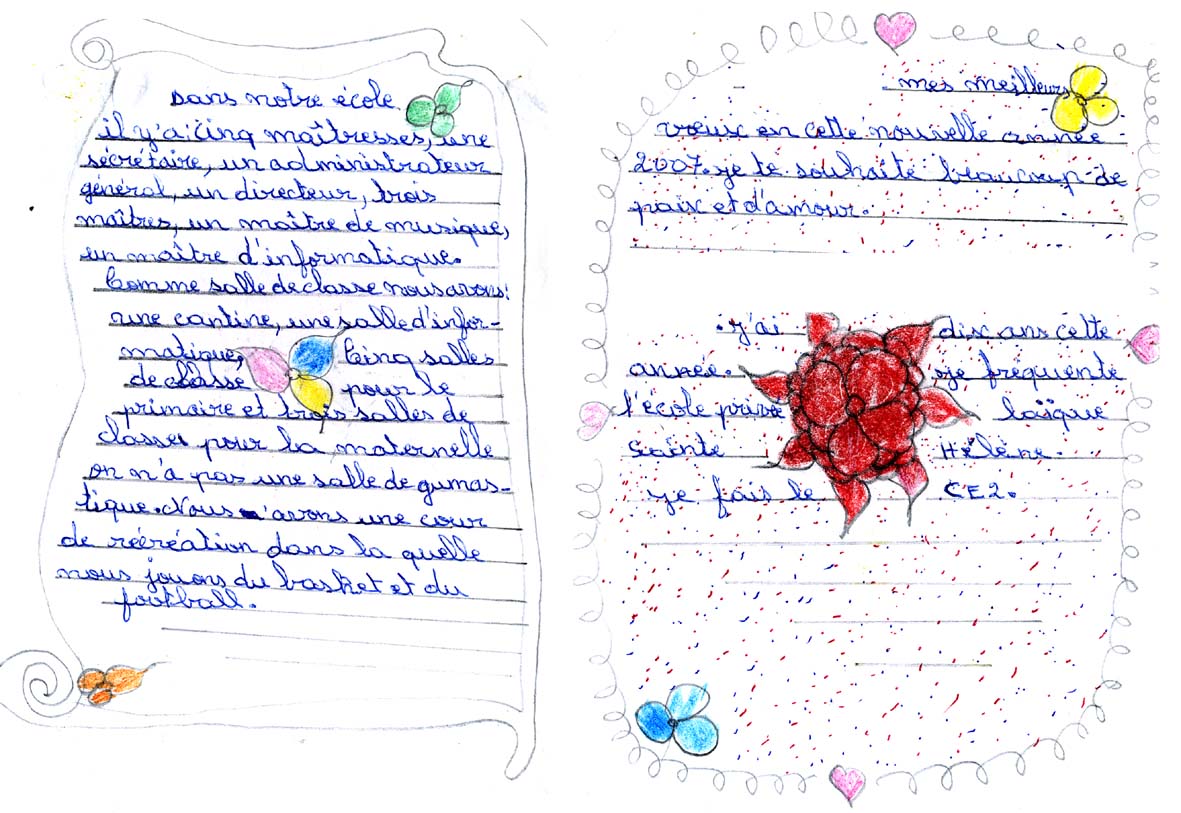 dans notre école
il y'a cinq maîtresses, une
sécrétaire, un administrateur
général, un directeur, trois
maîtres, un maître de musique,
un maître d'informatique.
Comme salle de classe nous avons:
une cantine, une salle d'infor-
matique, Cinq salles
de classe pour le
primaire et trois salles de
classe pour la maternelle
on n'a pas une salle de gumas-
tique. Nous avons une cour
de récréation dans la quelle
nous jouons du basket et du
football.
mes meilleurs
vœux en cette nouvelle année
2007. je te souhaite beaucoup de
paix et d'amour.
j'ai dix ans cette
année. je fréquente
l'école privé laïque
Sainte Hélène.
je fais le CE2.